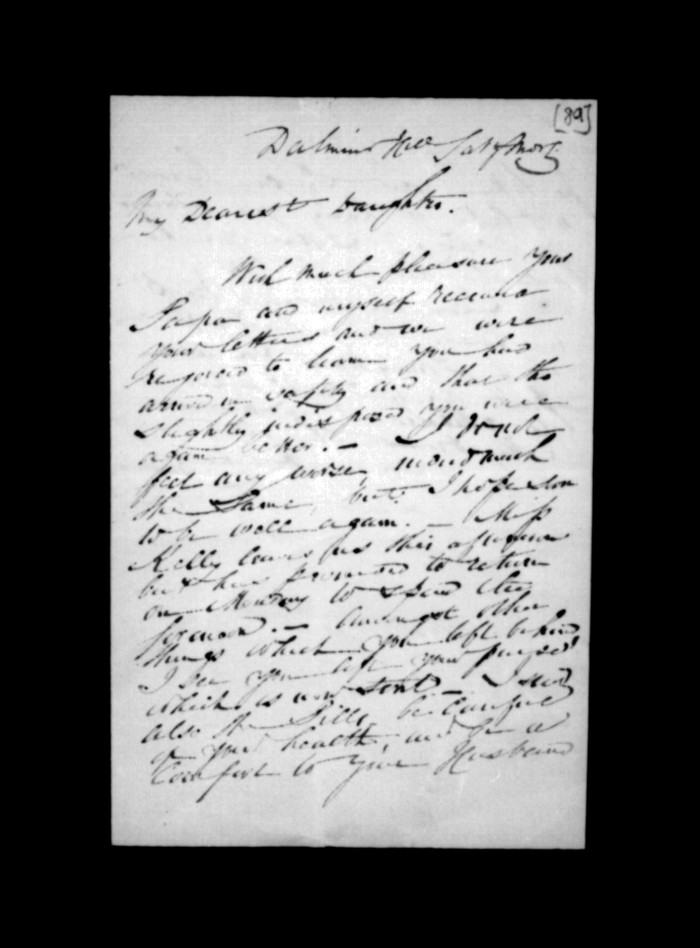 [89]
Saty Morg
My Dearest Daughter.
With much pleasure your
Papa and myself received
your letters and we were
rejoiced to learn you had
arrived in safety and that tho
slightly indisposed you were
again better. — I do not
feel any worse, much
the same, but I hope soon
to be well again. — Miss
Kelly leaves us this afternoon
but has promised to return
on Monday to spend the
forenoon. — Amongst other
things which you left behind
I see you left your purse
which is now sent — I send
also the Pills, be careful
of your health, and be a
Comfort to your Husband